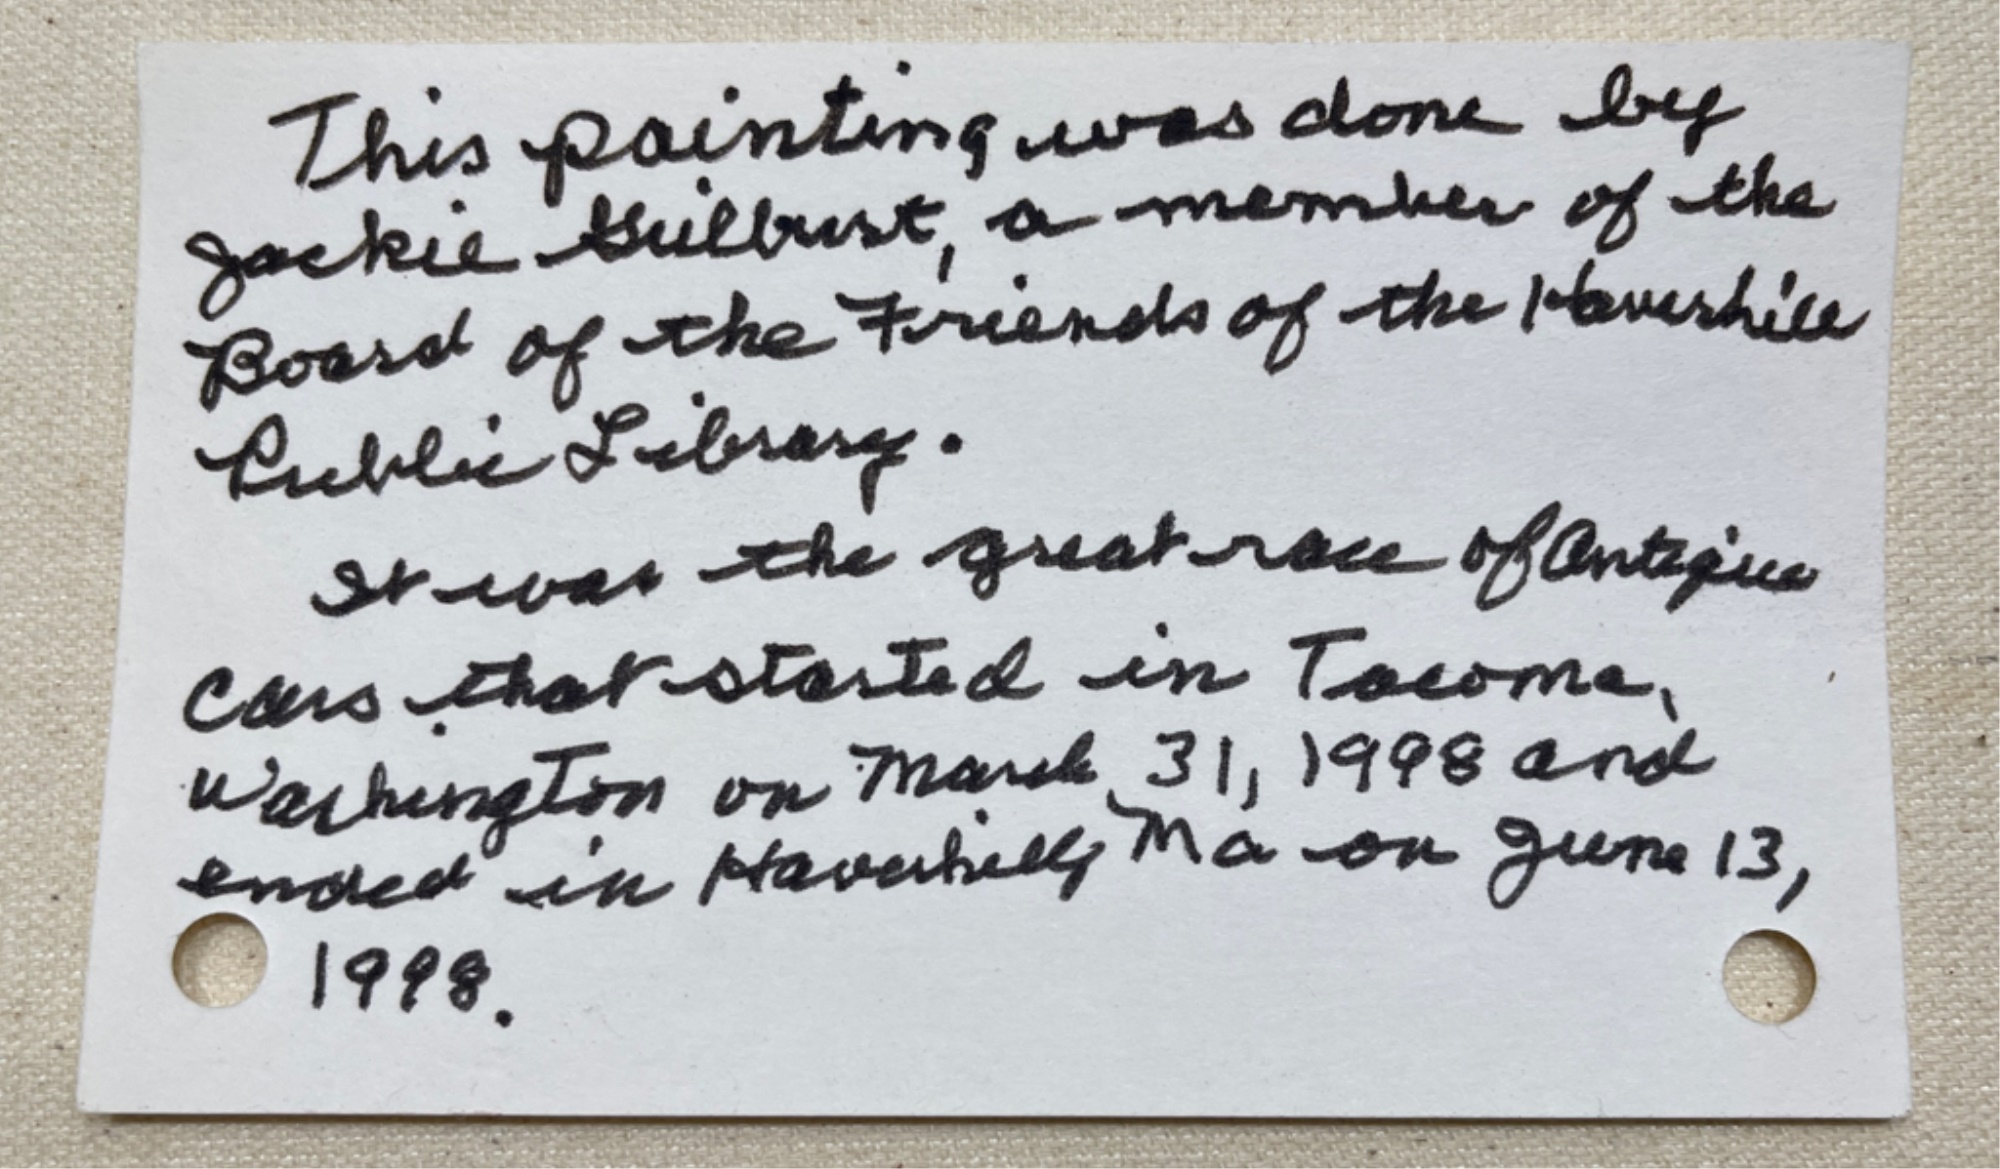 This painting was done by
Jackie Guilbust, a member of the
Board of the Friends of the Haverhill
Public Library.
It was the great race of Antique
cars that started in Tacoma,
Washington on March 31, 1998 and
ended in Haverhill, Ma on June 13,
1998.